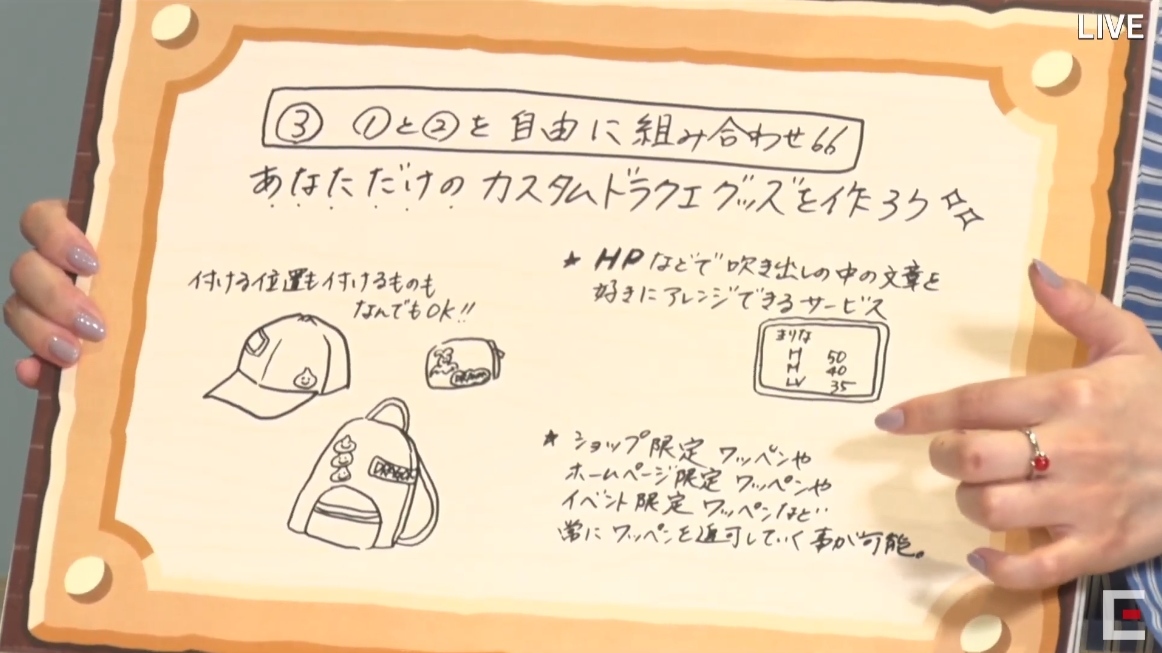 LIVE
③ ①と②を自由に組み合わせ66
あなただけのカスタムドラクエグッズを作ろう
付ける位置も付けるものも
なんでもOK!!
★ HPなどで吹き出しの中の文章を
好きにアレンジできるサービス
まりな
H 50
M 40
LV 35
DRAGON
★ ショップ限定 ワッペンや
ホームページ限定 ワッペンや
イベント限定 ワッペンなど…
常にワッペンを追加していく事が可能。